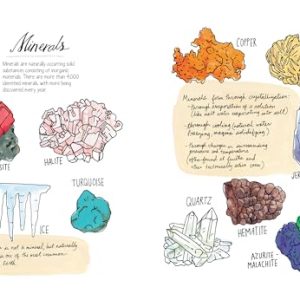 Minerals
Minerals are naturally occurring solid
substances consisting of inorganic
materials. There are more than 4000
identified minerals, with more being
discovered every year.
HALITE
TURQUOISE
ICE
is not a mineral, but naturally
is one of the most common
Earth.
COPPER
Minerals form through crystallization:
- through evaporation of a solution
(like salt water evaporating into salt)
- through cooling
- through changes in surrounding
pressure and temperature
QUARTZ
HEMATITE
AZURITE-
MALACHITE